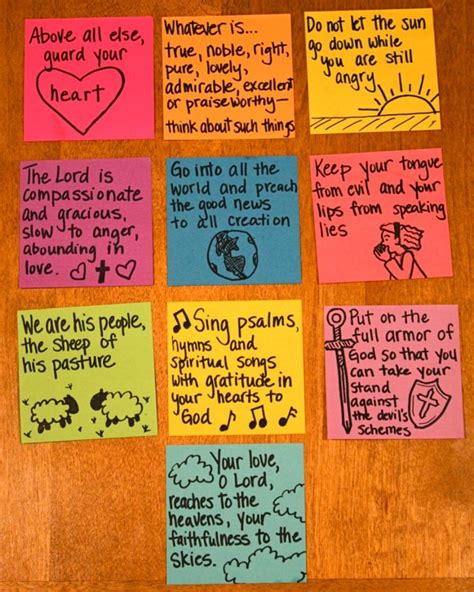 Above all else,
guard your
heart
Whatever is...
true, noble, right,
pure, lovely,
admirable, excellent
or praiseworthy—
think about such things
Do not let the sun
go down while
you are still
angry
The Lord is
compassionate
and gracious,
slow to anger,
abounding in
love.
Go into all the
world and preach
the good news
to all creation
Keep your tongue
from evil and your
lips from speaking
lies
We are his people,
the sheep of
his pasture
Sing psalms,
hymns and
spiritual songs
with gratitude in
your hearts to
God
Put on the
full armor of
God so that you
can take your
stand
against
the devil's
schemes
Your love,
O Lord,
reaches to the
heavens, your
faithfulness to the
skies.